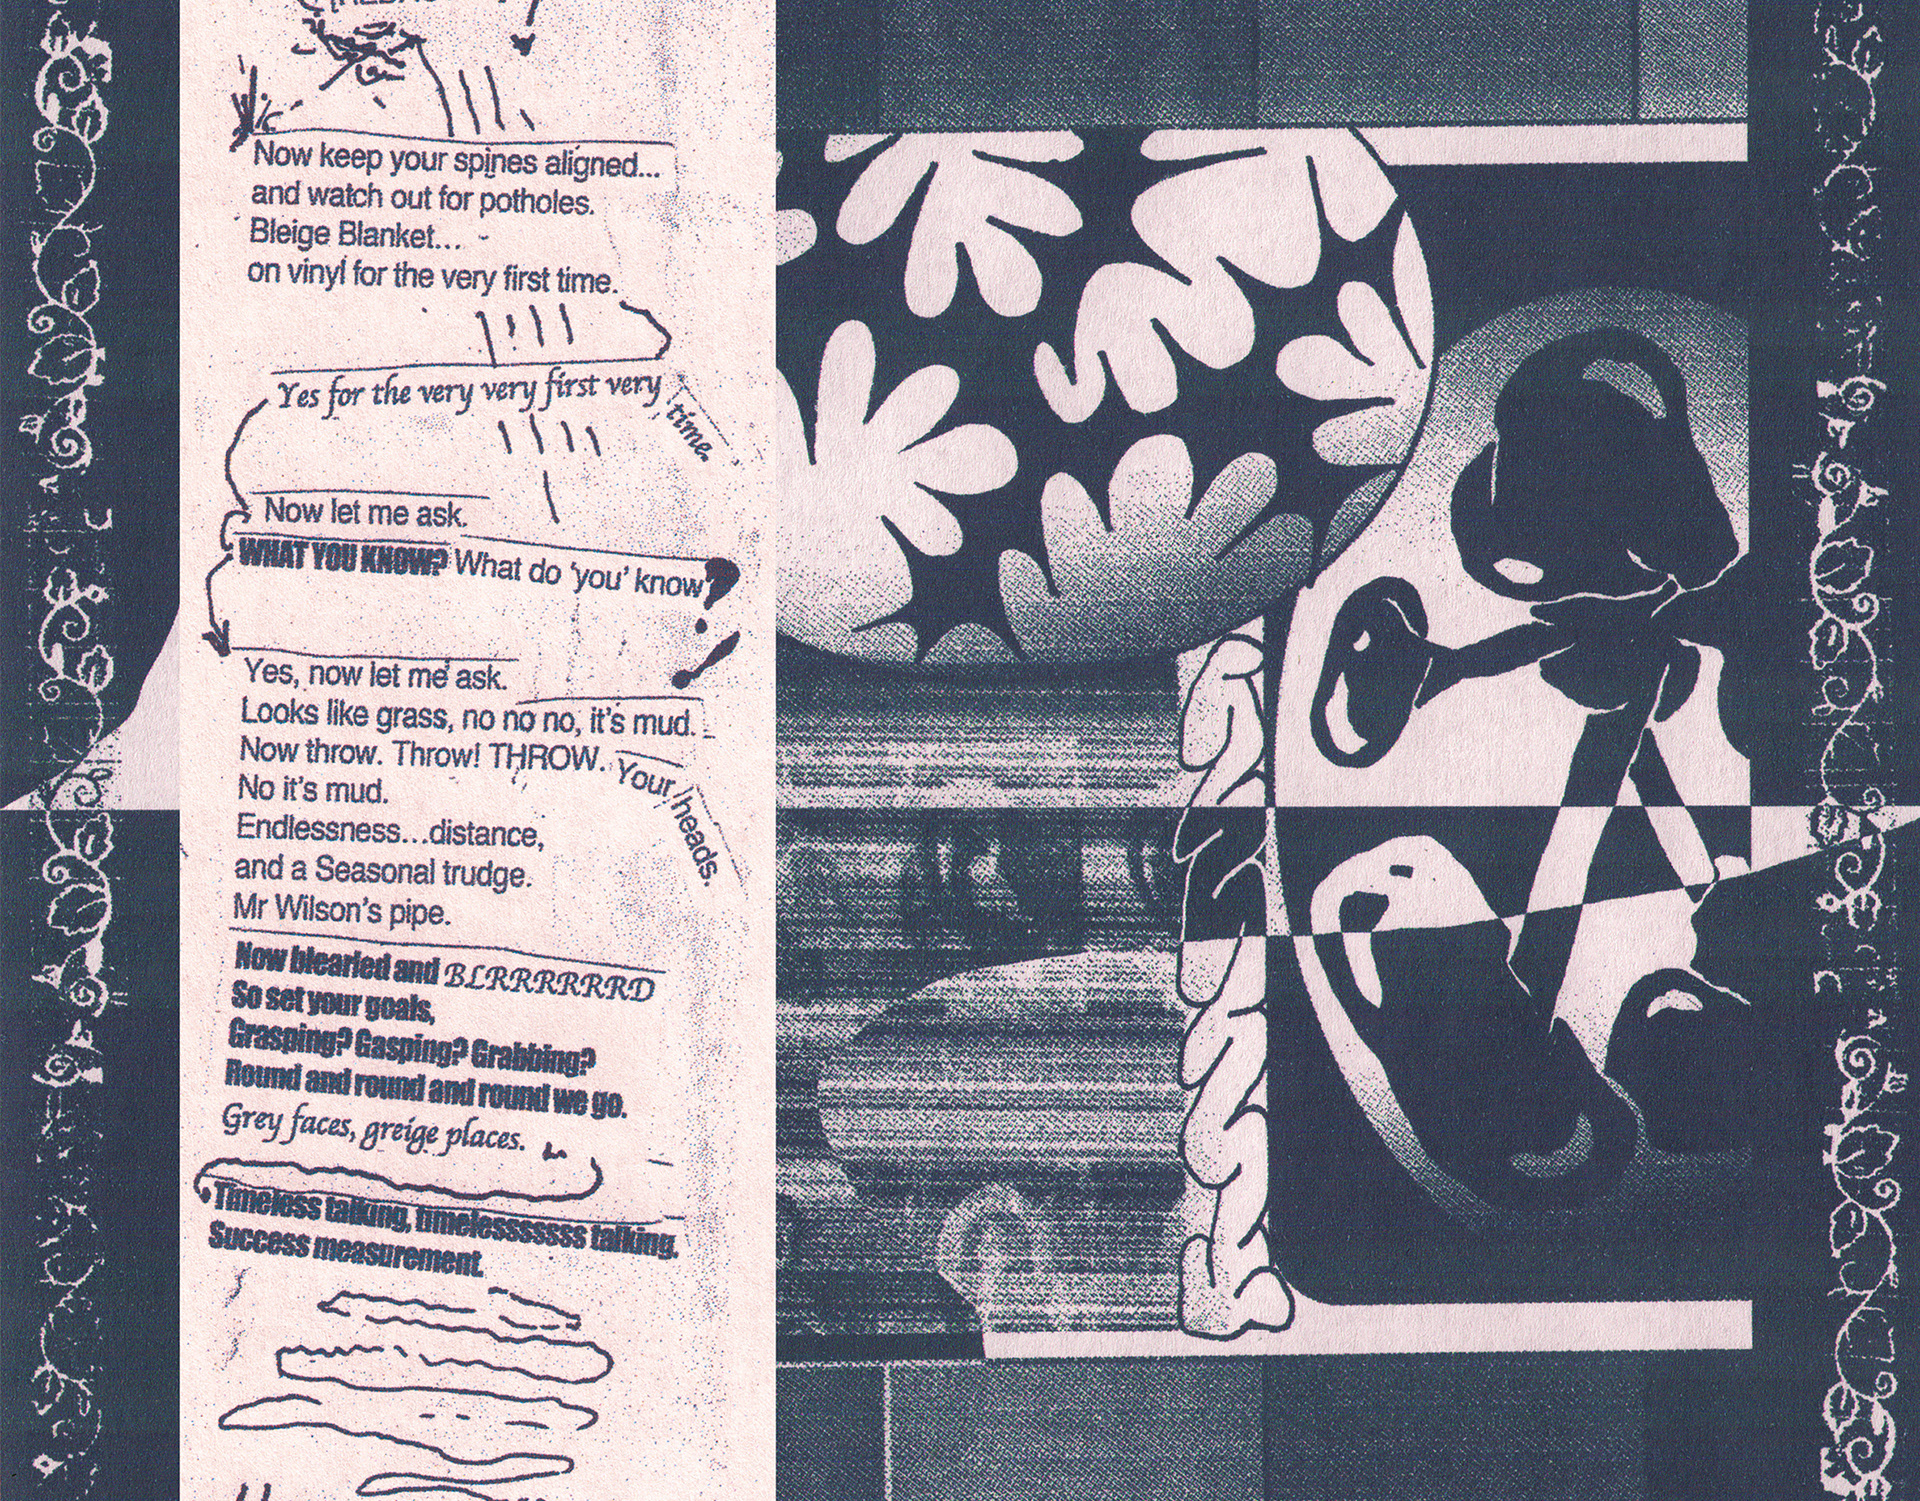 Now keep your spines aligned...
and watch out for potholes.
Bleige Blanket...
on vinyl for the very first time.
Yes for the very very first very time.
Now let me ask.
WHAT YOU KNOW? What do 'you' know?
Yes, now let me ask.
Looks like grass, no no no, it's mud.
Now throw. Throw! THROW. Your heads.
No it's mud.
Endlessness...distance,
and a Seasonal trudge.
Mr Wilson's pipe.
Now blearied and BLRRRRRRD
So set your goals,
Grasping? Gasping? Grabbing?
Round and round and round we go.
Grey faces, greige places.
Timeless talking, timelesssssss talking.
Success measurement.